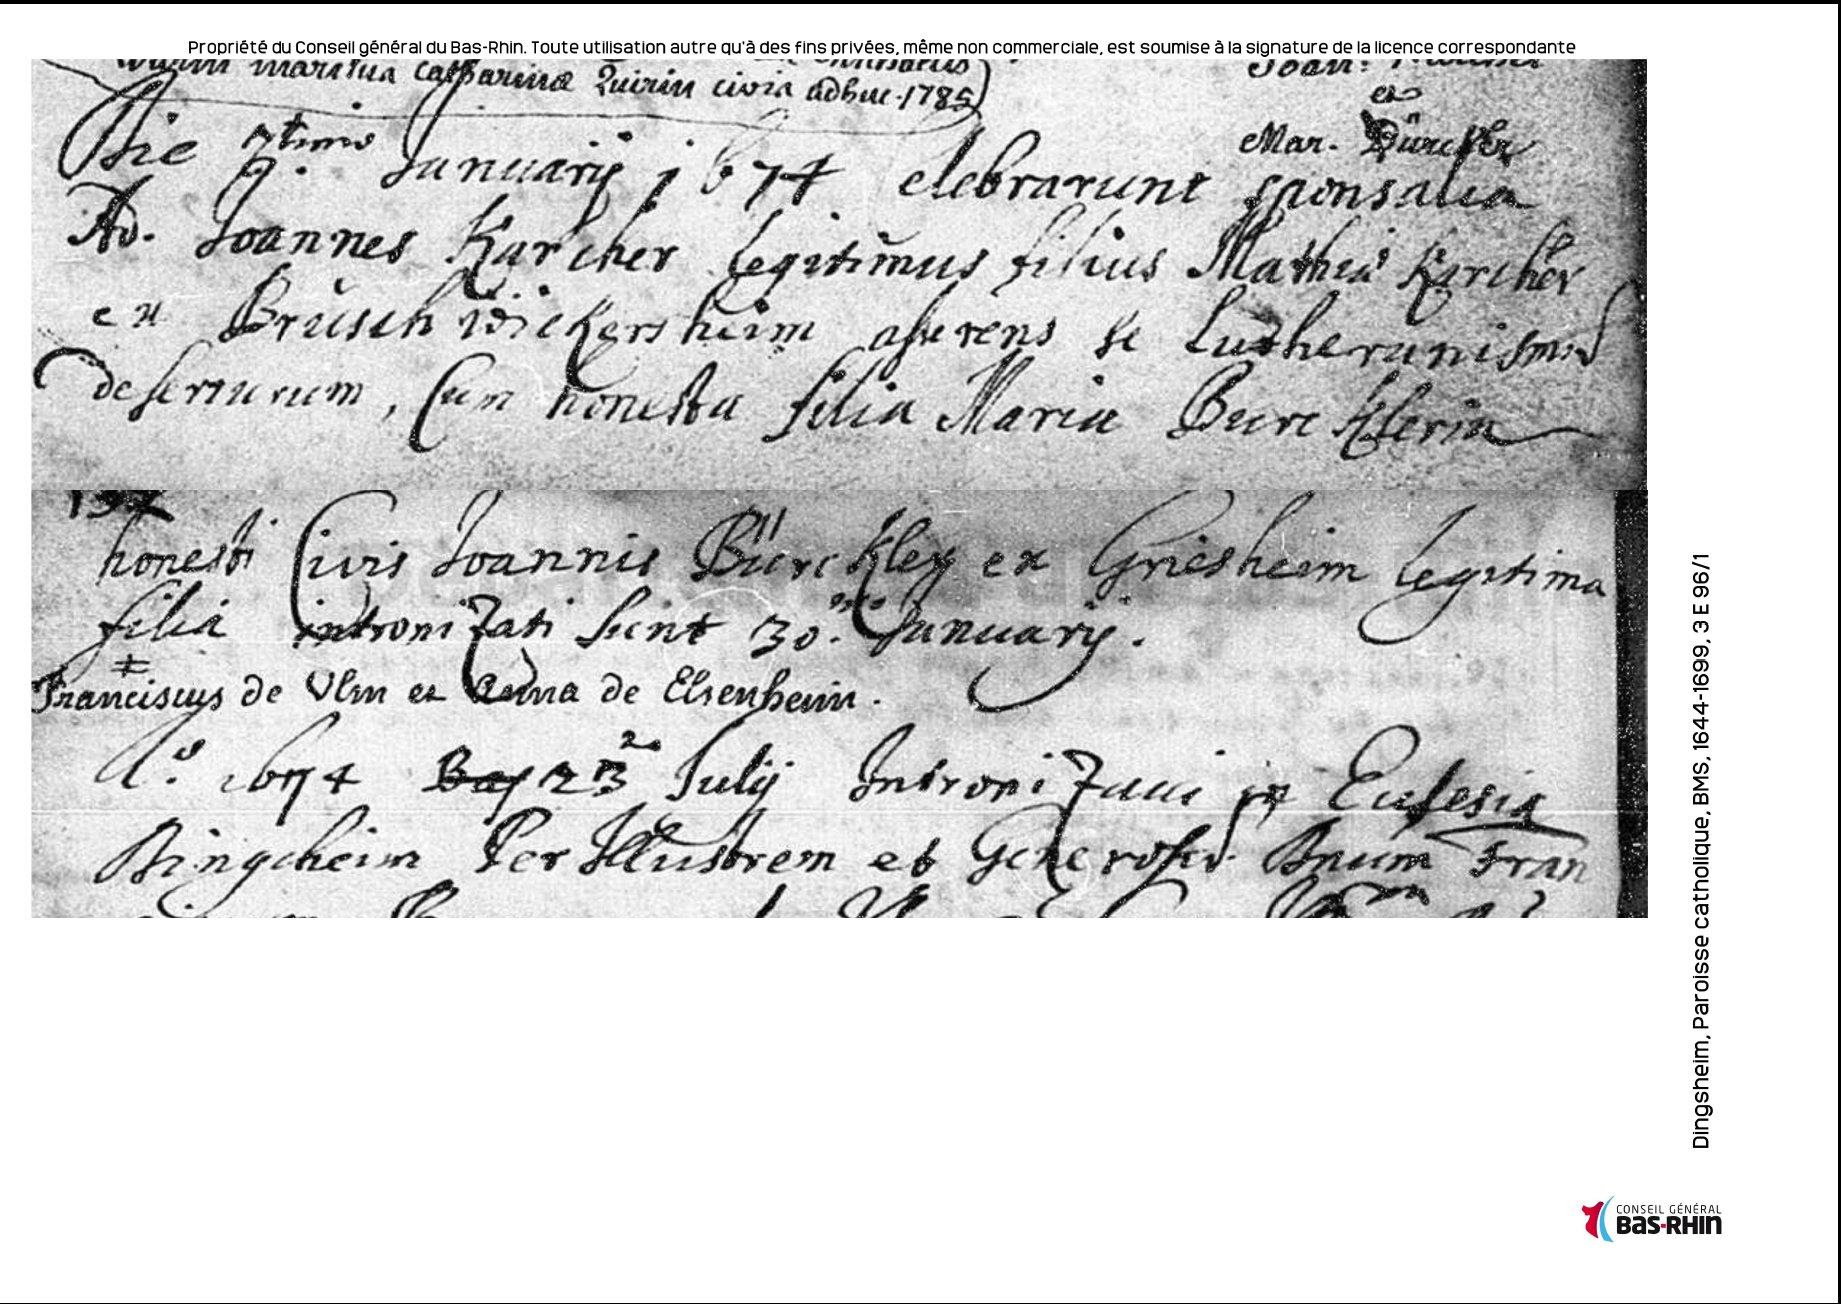 Propriété du Conseil général du Bas-Rhin. Toute utilisation autre qu'à des fins privées, même non commerciale, est soumise à la signature de la licence correspondante
maritus Catharinæ Quirin civis adhuc. 1785)
Joan.
et
Mar. Bürckler
Die 9. Januarij 1674 elebrarunt sponsalia
Ad. Joannes Karcher legitimus filius Mathiä Karcher
ex Brüschwickersheim asserens se Lutheranismum
deserturum, Cum honesta filia Maria Burcklerin
honesti Civis Joannis Bürckley ex Griesheim legitima
filia intronizati sunt 30. Januarij.
Franciscus de Ulm et Anna de Elsenheim.
A.º 1674 23 Julij Intronizavi in Ecclesia
Dingsheim Per Illustrem et Generosū Dnum Fran
Dingsheim, Paroisse catholique, BMS, 1644-1699, 3 E 96/1
CONSEIL GÉNÉRAL
BAS-RHIN